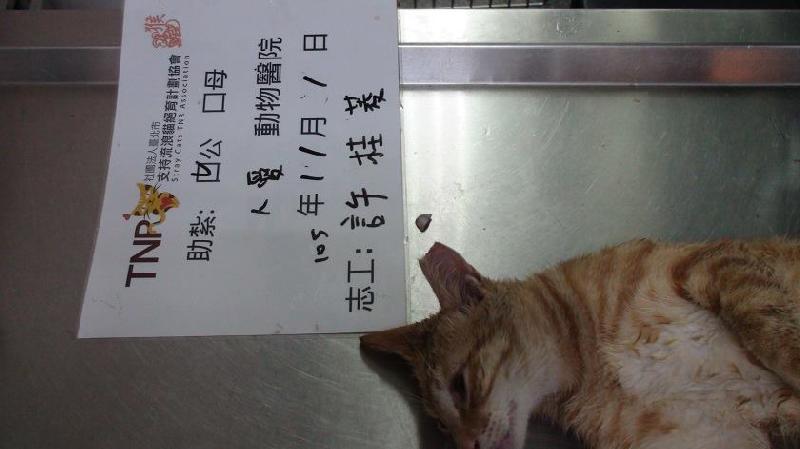 社團法人臺北市
支持流浪貓絕育計劃協會
Stray Cats TNR Association
TNR
助紮: ☑公 □母
人愛 動物醫院
105年11月1日
志工: 許桂菱